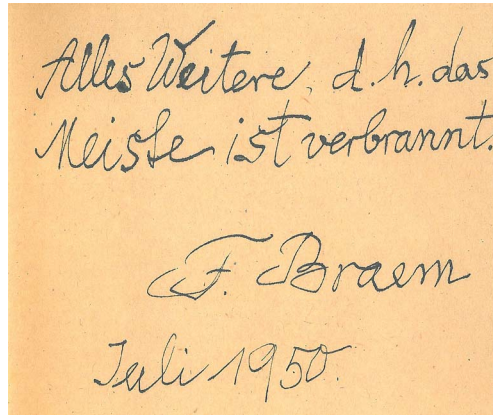 Alles Weitere, d. h. das
Meiste ist verbrannt.
F. Braem
Juli 1950.